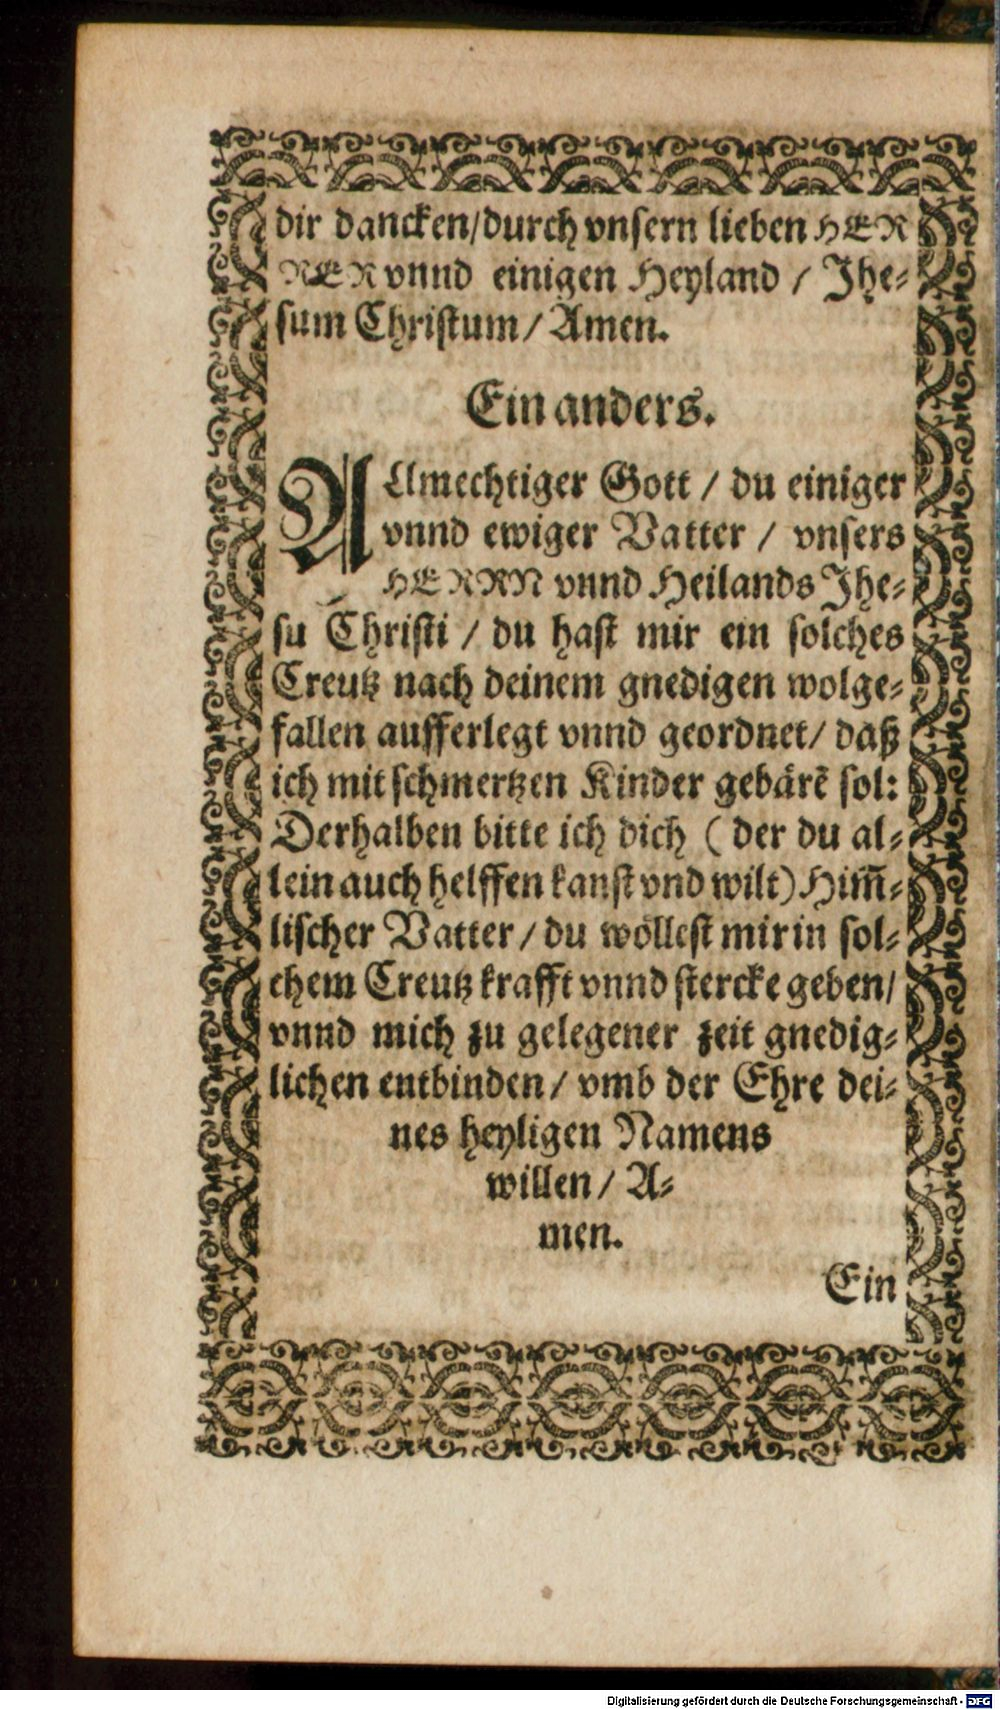 dir dancken/durch vnsern lieben HER
REN vnnd einigen Heyland / Jhe-
sum Christum/ Amen.
Ein anders.
ALlmechtiger Gott / du einiger
vnnd ewiger Vatter / vnsers
HERRN vnnd Heilands Jhe-
su Christi / du hast mir ein solches
Creutz nach deinem gnedigen wolge-
fallen aufferlegt vnnd geordnet/ daß
ich mit schmertzen Kinder gebärē sol:
Derhalben bitte ich dich ( der du al-
lein auch helffen kanst vnd wilt) Him̄-
lischer Vatter/ du wöllest mir in sol-
chem Creutz krafft vnnd stercke geben/
vnnd mich zu gelegener zeit gnedig-
lichen entbinden/ vmb der Ehre dei-
nes heyligen Namens
willen/ A-
men.
Ein
Digitalisierung gefördert durch die Deutsche Forschungsgemeinschaft - DFG